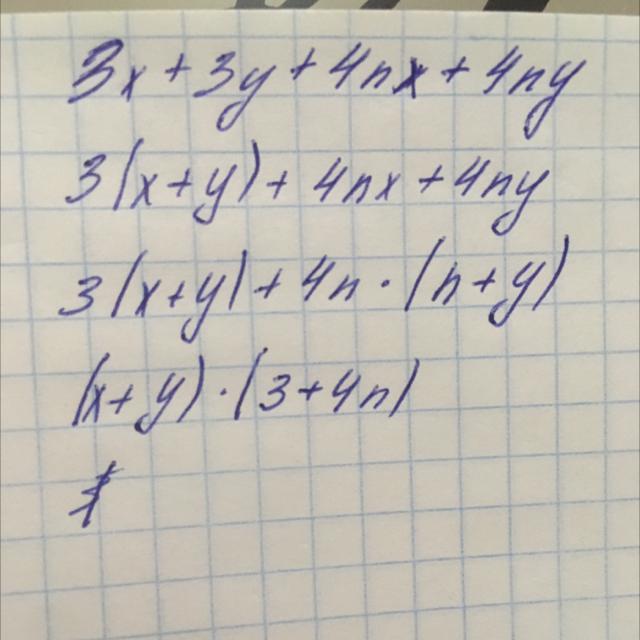 3x + 3y + 4nx + 4ny
3(x+y) + 4nx + 4ny
3(x+y) + 4n · (n+y)
(x+y) · (3+4n)